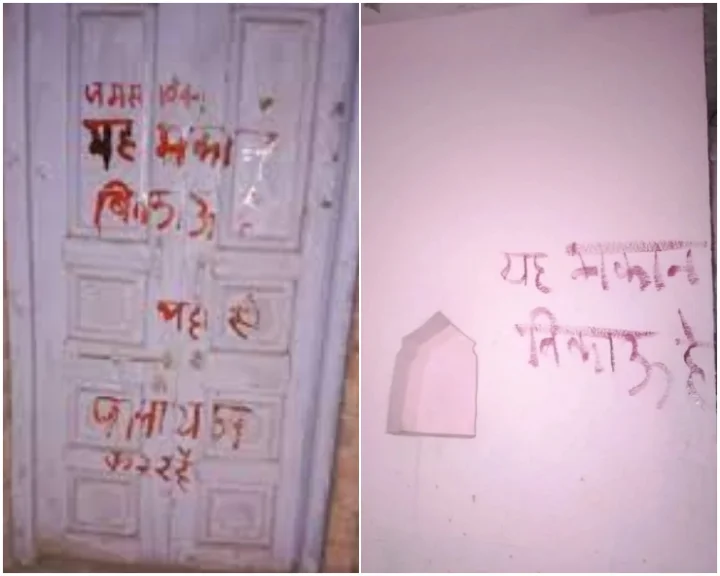 यह मकान
बिकाऊ है
यहा से
पलायन
कर रहे
यह मकान
बिकाऊ है